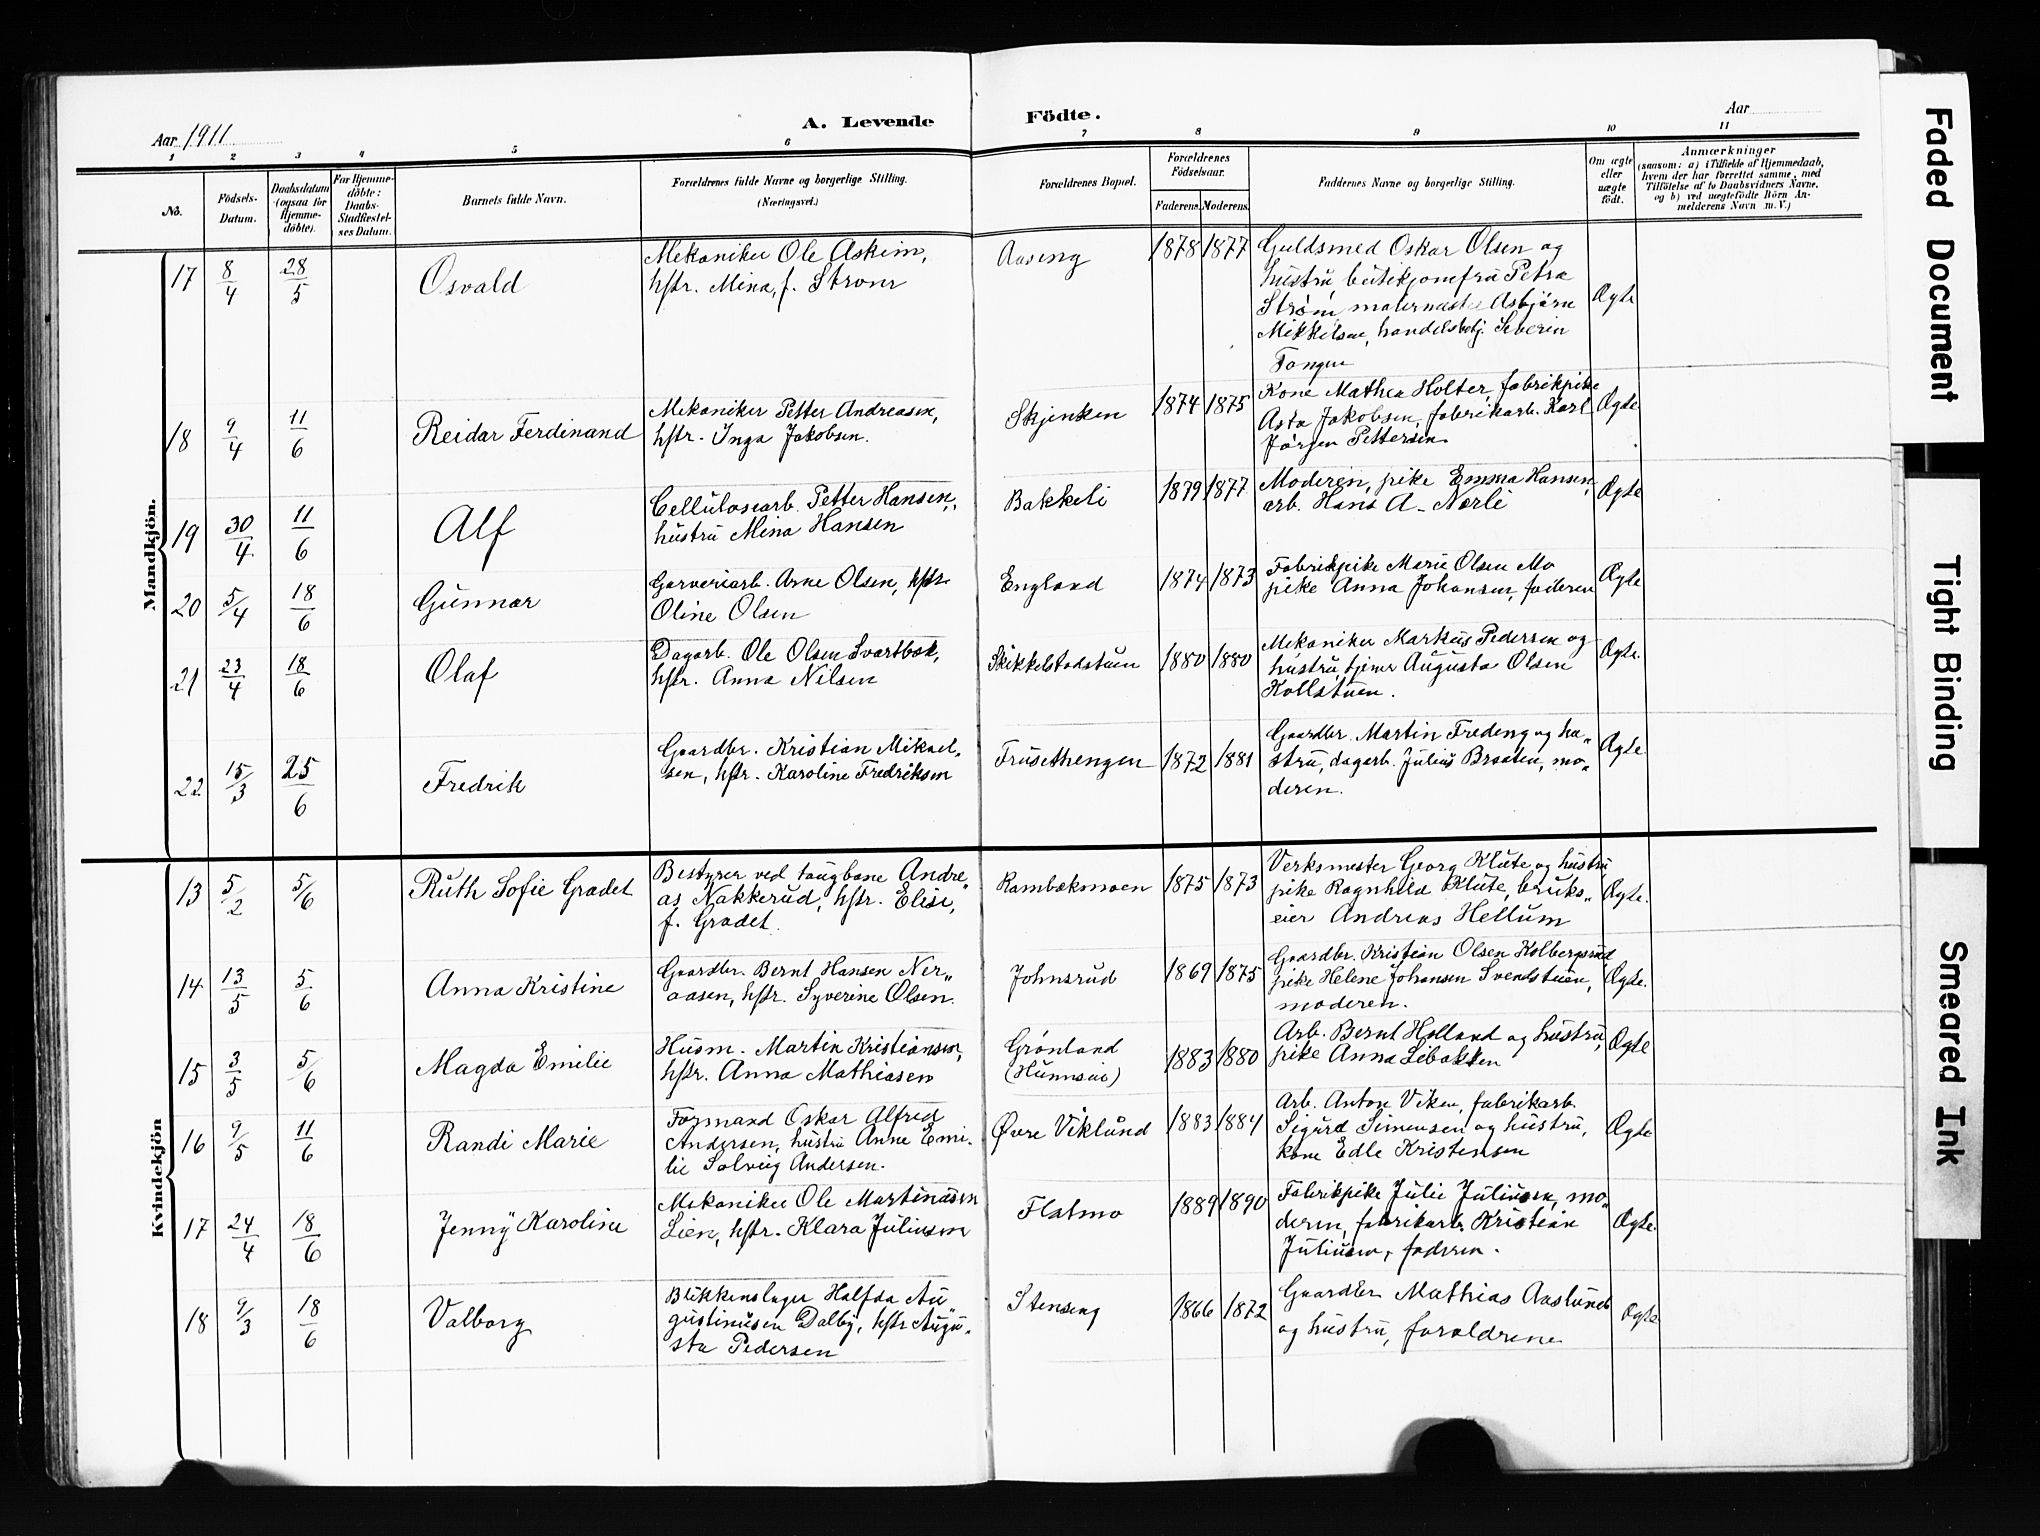 Aar 1911
A. Levende Födte.
Aar
1 2 3 4 5 6 7 8 9 10 11
No.
Födsels-Datum.
Daabsdatum (ogsaa for Hjemmedöbte).
For Hjemmedöbte: Daabs-Stadfæstelses Datum.
Barnets fulde Navn.
Forældrenes fulde Navne og borgerlige Stilling.
(Næringsvei.)
Forældrenes Bopæl.
Forældrenes Födselsaar.
Faderens. Moderens.
Faddernes Navne og borgerlig Stilling.
Om ægte eller uægte födt.
Anmærkninger
(saasom: a) i Tilfælde af Hjemmedaab,
hvem der har forrettet samme, med
Tilföielse af to Daabsvidners Navne,
og b) ved uægtefödte Börn An-
melderens Navn m. V.)
Mandkjön.
17 8/4 28/5 Osvald
Mekaniker Ole Askim,
hstr. Mina, f. Strøm
Aaseng 1878 1877
Guldsmed Oskar Olsen og
hustru, butikjomfru Petra
Strøm, Asbjørn
Mikkelsen, handelsbetj. Severin
Tangen
Ægte
18 9/4 11/6 Reidar Ferdinand
Mekaniker Petter Andreasen,
hstr. Inga Jakobsen.
Skjenken 1874 1875
Kone Mathea Holter, fabrikpike
Asta Jakobsen, fabrikarb. Karl
Jørgen Pettersen
Ægte
19 30/4 11/6 Alf
Cellulosearb. Petter Hansen,
hustru Mina Hansen
Bakkeli 1879 1877
Moderen, pike Emma Hansen,
arb. Hans A. Nerli
Ægte
20 5/4 18/6 Gunnar
Garveriarb. Arne Olsen, hstr.
Oline Olsen
England 1874 1873
Fabrikpike Marie Olsen Mo
pike Anna Johansen, faderen
Ægte
21 23/4 18/6 Olaf
Dagarb. Ole Olsen Svartbæk,
hstr. Anna Nilsen
Skikkelstadstuen 1880 1880
Mekaniker Markus Pedersen og
hustru, tjener Augusta Olsen
Kollstuen.
Ægte.
22 15/3 25/6 Fredrik
Gaardbr. Kristian Mikael-
sen, hstr. Karoline Fredriksen
Frusethengen 1872 1881
Gaardbr. Martin Fredeng og hu-
stru, dagarb. Julius Braaten, mo-
deren.
Ægte
Kvindekjön
13 5/2 5/6 Ruth Sofie Grådet
Bestyrer ved taugbane Andre-
as Nøkkerud, hstr. Elise,
f. Grådet.
Rambækmoen 1875 1873
Verksmester Georg Klute og hustru
pike Ragnhild Klute, bruks-
eier Andreas Hellum
Ægte.
14 13/5 5/6 Anna Kristine
Gaardbr. Bernt Hansen Ner-
aasen, hstr. Syverine Olsen.
Johnsrud 1869 1875
Gaardbr. Kristian Olsen Kolbergsrud
pike Helene Johansen Svendstuen,
moderen.
Ægte.
15 3/5 5/6 Magda Emilie
Husm. Martin Kristiansen,
hstr. Anna Mathiasen
Grønland
(Hunnseie)
1883 1880
Arb. Bernt Holland og hustru,
pike Anna Libakken
Ægte
16 9/5 11/6 Randi Marie
Formand Oskar Alfred
Andersen, hustru Anne Emi-
lie Solveig Andersen.
Øvre Viklund 1883 1884
Arb. Anton Viken, fabrikarb.
Sigurd Simensen og hustru,
kone Edle Kristensen
Ægte
17 24/4 18/6 Jenny Karoline
Mekaniker Ole Martinusen
Lien, hstr. Klara Juliusen
Flatmo 1889 1890
Fabrikpike Julie Juliusen, mo-
deren, fabrikarb. Kristian
Juliusen, faderen.
Ægte.
18 9/3 18/6 Valborg
Blikkenslager Halfda Au-
gustinusen Dalby, hstr Augu-
sta Pedersen
Stenseng 1866 1872
Gaardbr. Mathias Aaslund
og hustru, forældrene
Ægte
Faded Document
Tight Binding
Smeared Ink